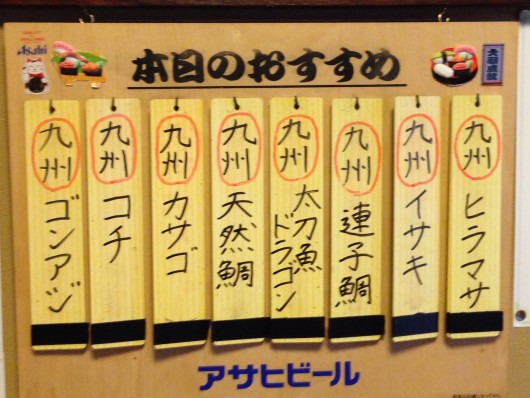 Asahi
本日のおすすめ
大願成就
九州 ヒラマサ
九州 イサキ
九州 連子鯛
九州 太刀魚 ドラゴン
九州 天然鯛
九州 カサゴ
九州 コチ
九州 ゴンアジ
アサヒビール